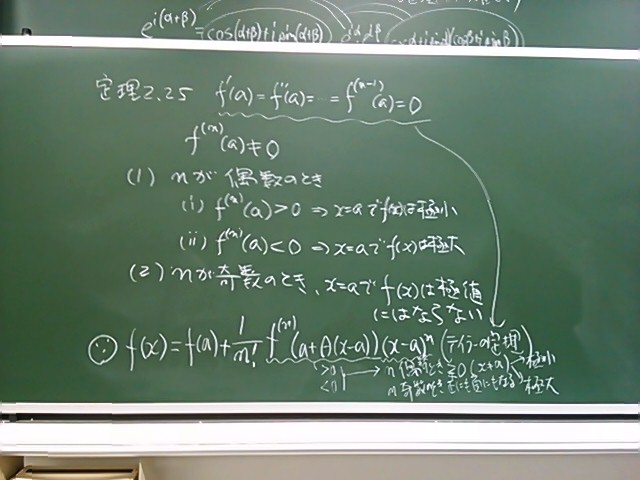 e^{i(α+β)} = cos(α+β)+i sin(α+β)
定理2.25 f'(a)=f''(a)=…=f^{(n-1)}(a)=0
f^{(n)}(a)≠0
(1) nが偶数のとき
(i) f^{(n)}(a)>0 ⇒ x=aでf(x)は極小
(ii) f^{(n)}(a)<0 ⇒ x=aでf(x)は極大
(2) nが奇数のとき、x=aでf(x)は極値
にはならない
∵ f(x)=f(a)+\frac{1}{n!}f^{(n)}(a+θ(x-a))(x-a)^n (テイラーの定理)
>0 → n偶数のとき ≧0 (x≠a) 極小
<0 n奇数のとき正にも負にもなる 極大